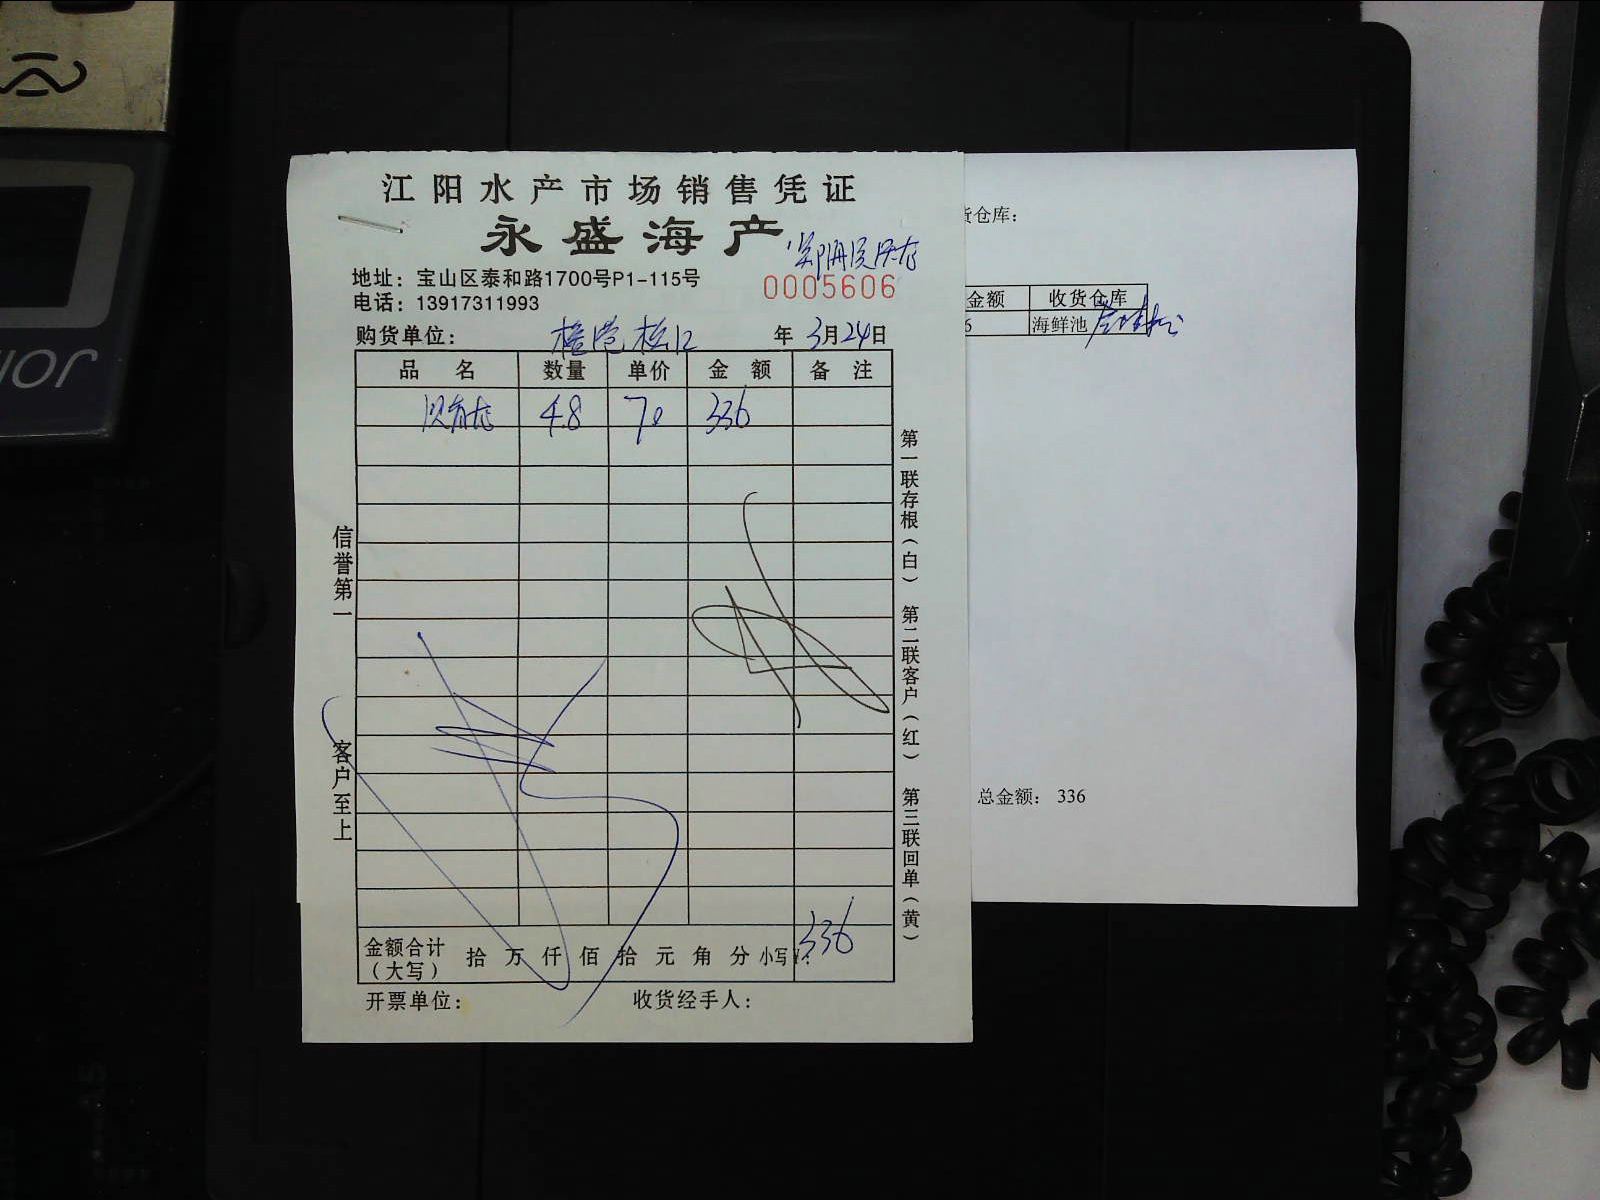 江阳水产市场销售凭证
永盛海产
地址：宝山区泰和路1700号P1-115号
0005606
电话：13917311993
购货单位： 年 3月24日
品名 数量 单价 金额 备注
4.8 70 336
信誉第一
客户至上
第一联存根（白） 第二联客户（红） 第三联回单（黄）
金额合计（大写） 拾 万 仟 佰 拾 元 角 分 小写¥： 336
开票单位： 收货经手人：
货仓库：
金额 收货仓库
6 海鲜池
总金额： 336